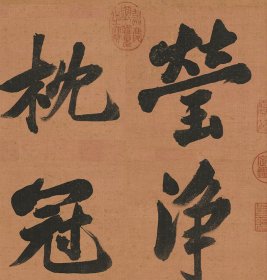 瑩淨
枕冠